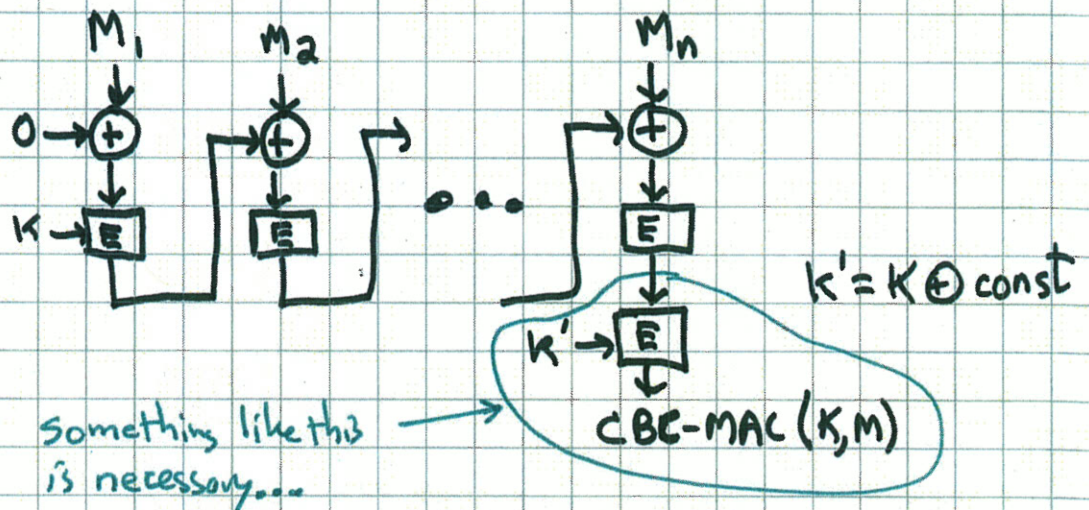 M₁ M₂ Mₙ
0 → ⊕ ⊕ ⊕
K → E E E
K' = K ⊕ const
K' → E
CBC-MAC (K,M)
Something like this
is necessary....